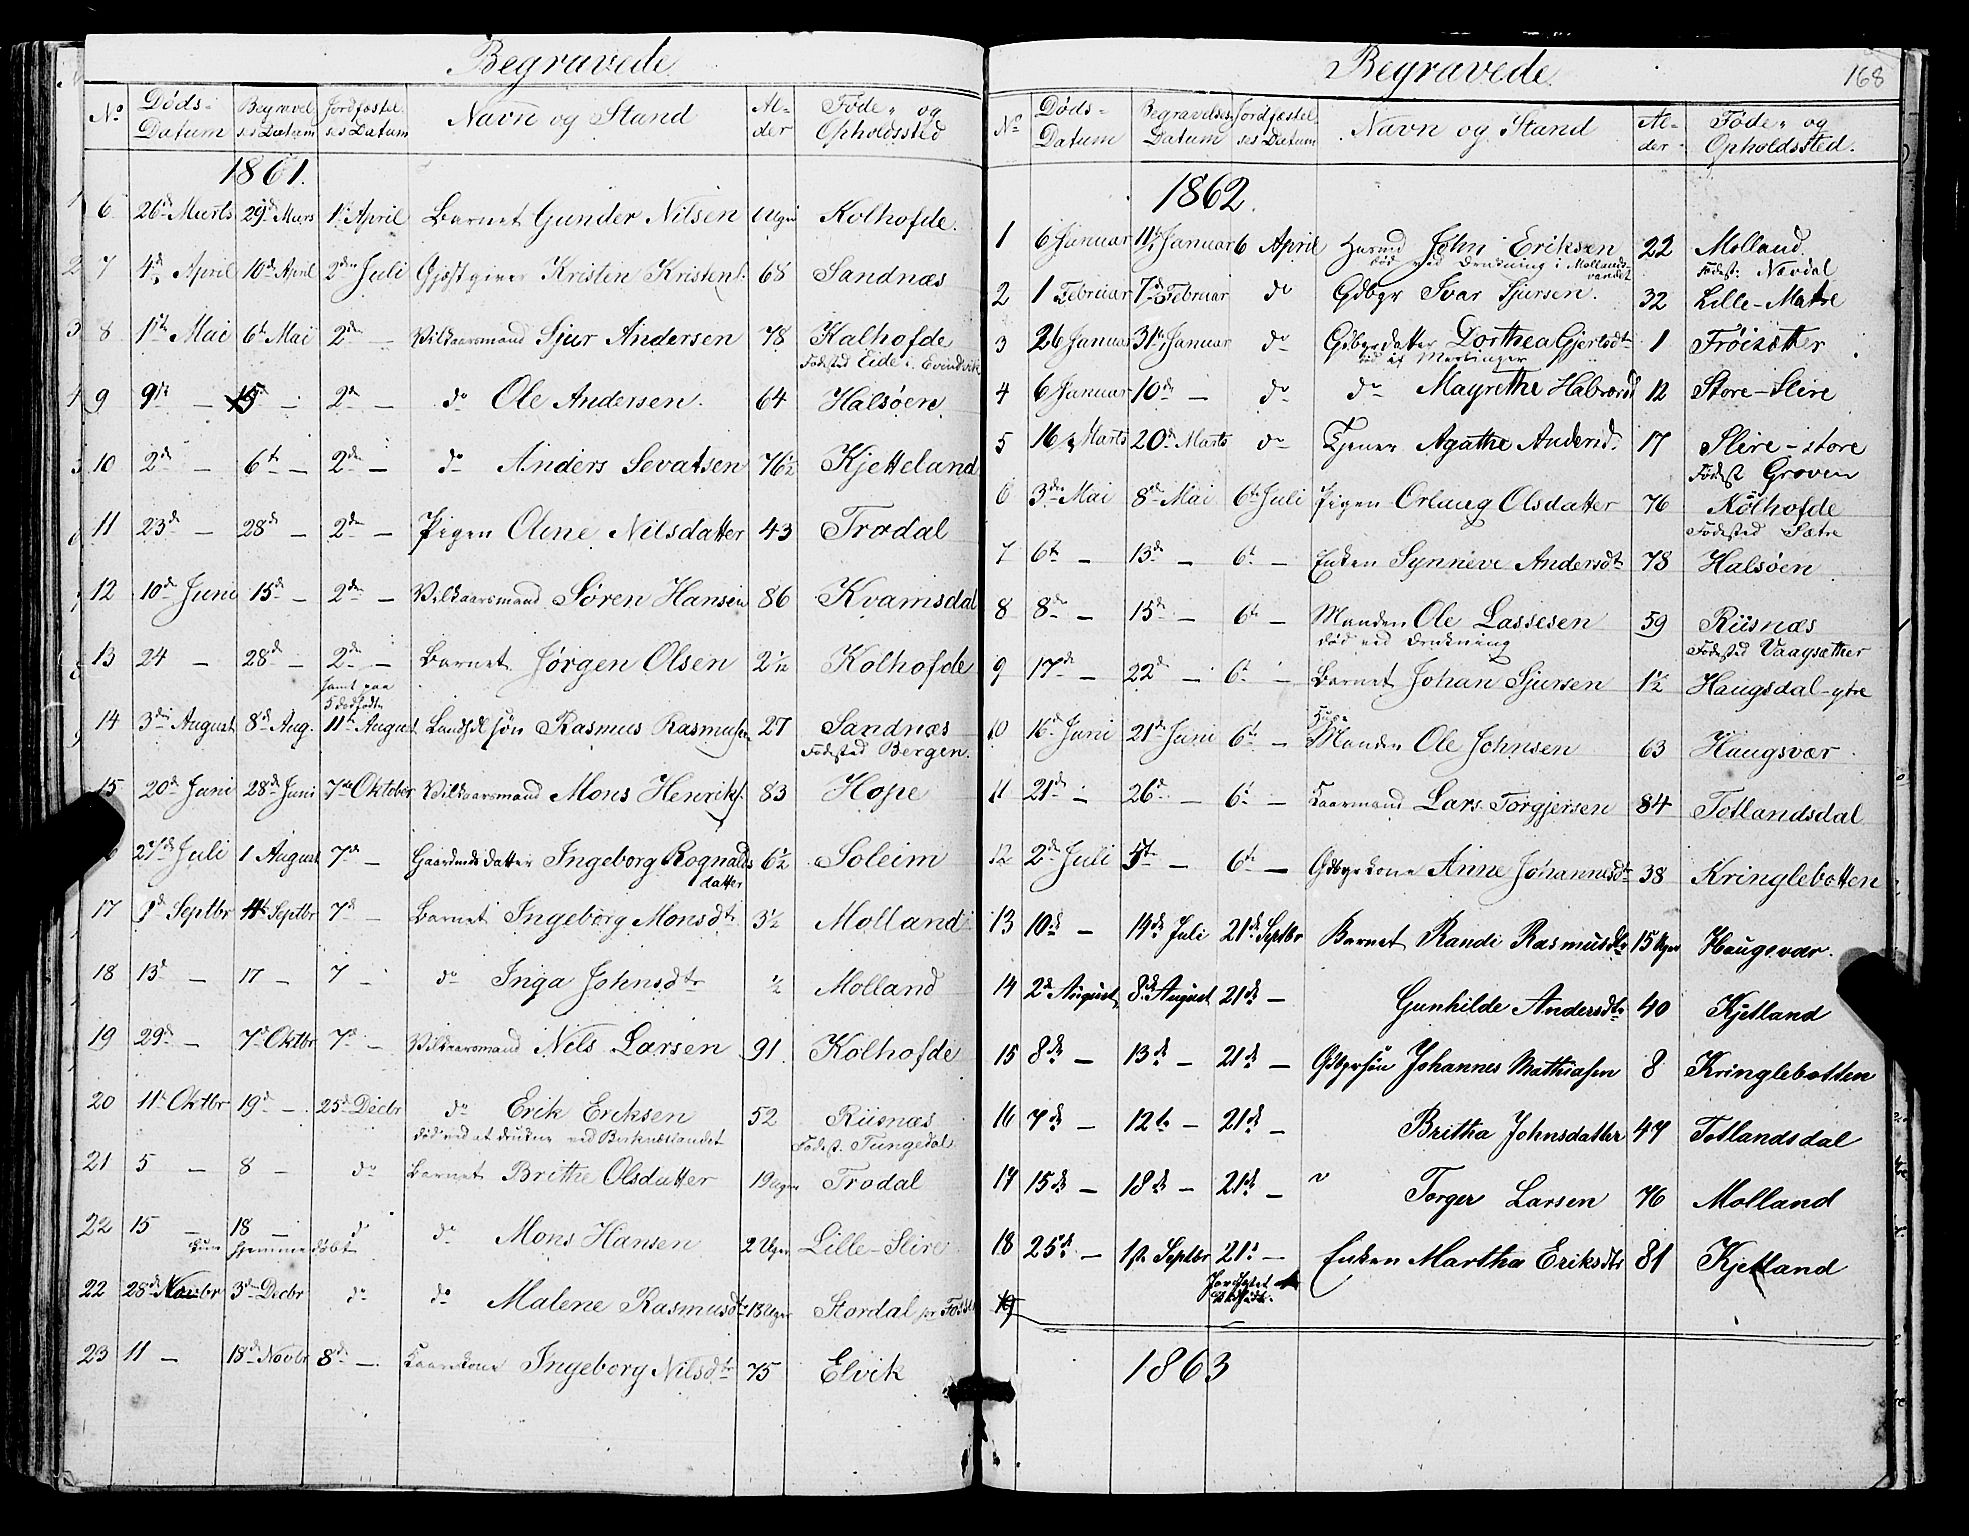 Begravede
No Døds-Datum Begravelses Datum Jordfæstelses Datum Navn og Stand Alder Føde- og Opholdssted
1861.
6 26de Marts 29de Mars 1ste April Barnet Gunder Nilsen Uger Kolhofde.
7 4de April 10de April 2den Juli Gjæstgiver Kristen Kristens. 68 Sandnæs
8 1ste Mai 6te Mai 2den — Vilkaarsmand Sjur Andersen 78 Kalhofde
Fødested Eide i Evindvik
9 9de — 15de — 2den — do Ole Andersen. 64 Halsøen
10 2den — 6te — 2den — do Anders Sevatsen 76½ Kjetteland
11 23de — 28de — 2den — Pigen Oline Nilsdatter 43 Trodal
12 10de Juni 15de — 2den — Vilkaarsmand Søren Hansen 86 Kvamsdal
13 24 — 28de — 2den — Barnet Jørgen Olsen 2 1/12 Kolhofde
samt paa
5 dødfødte
14 3die August 8de Aug. 11te August Landh. søn Rasmus Rasmusen 27 Sandnæs
Fødested Bergen.
15 20de Juni 28de Juni 7de Oktober Vilkaarsmand Mons Henriks. 83 Hope
27de Juli 1 August 7de — Gaardmds datter Ingeborg Rognalds 6½ Soleim
datter
17 1ste Septbr 4de Septbr 7de — Barnet Ingeborg Monsdtr 3½ Molland
18 13de — 17 — 7 — do Inga Johnsdtr ½ Molland
19 29de — 7de Oktbr 7de — Vilkaarsmand Nels Larsen 91. Kolhofde
20 11te Oktbr 19de — 25de Decbr do Erik Eriksen 52 Riisnæs
død ved at drukne ved Birknæslandet Fødest. Tungedal
21 5 — 8 — do Barnet Brithe Olsdatter 19 Uger Trodal
22 15 — 18 — do do Mons Hansen 2 Uger Lille-Slire
kun hjemmedøbt
22 28de Novbr 3die Decbr do do Malene Rasmusdtr 13 Uger Stordal
23 11 — 18de Novbr 8de — Kaarskone Ingeborg Nilsdtr 75 Elvik
Begravede. 168
No Døds-Datum Begravelses Datum Jordfæstelses Datum Navn og Stand Alder Føde- og Opholdssted.
1862.
1 6 Januar 11te Januar 6 April John Eriksen 22 Molland
død ved Drukning i Mollandsvandet Fødest: Nordal
2 1 Februar 7de Februar do Gdbgr Ivar Sjursen. 32 Lille-Matre
3 26 Januar 31te Januar do Gdbgrdatter Dorthea Gjertsdtr 1 Frøisætter
død af Meslinger
4 6 Januar 10de — do do Magrethe Halvorsd 12 Store-Slire
5 16 Marts 20de Marts do Tjener Agathe Andersd. 17 Slire-store
Fødest Groven
6 3die Mai 8de Mai 6te Juli Pigen Orlaug Olsdatter 76 Kolhofde
Fødested Sætre
7 6te — 13de — 6te — Enken Synneve Andersdtr 78 Halsøen
8 8de — 15de — 6te — Manden Ole Lassesen 59 Riisnæs
død ved drukning Fødested Vaagsæther
9 17de — 22de — 6te — Barnet Johan Sjursen 1½ Haugsdal-ytre
10 16de Juni 21de Juni 6te — Manden Ole Johnsen 63 Haugsvær
11 21de — 26de — 6te — Kaarmand Lars Torgjersen 84 Totlandsdal
12 2de Juli 5te — 6te — Gdbgrkone Anne Johannesdtr 38 Kringlebotten
13 10de — 14de Juli 21de Septbr Barnet Randi Rasmusdtr 15 Uger Haugsvær.
14 2de August 8de August 21de — Gunhilde Andersdtr 40 Kjetland
15 8de — 13de — 21de — Gdbgrsøn Johannes Mathiasen 8 Kringlebotten
16 7de — 12te — 21de — Britha Johnsdatter 47 Totlandsdal
17 15de — 18de — 21de — " Torger Larsen 76 Molland
18 25de — 1ste Septbr 21de — Enken Martha Eriksdtr 81 Kjetland
19
1863